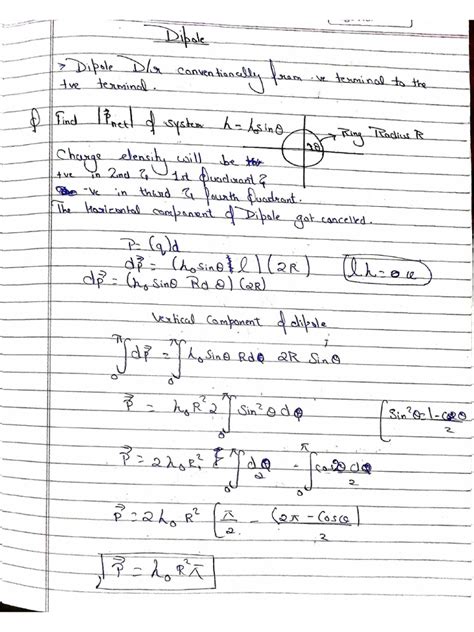 Dipole
> Dipole D/r conventionally from -ve terminal to the
+ve terminal.
Find |P⃗net| of system λ = λ₀sinθ
Ring Radius R
θ
Charge density will be
+ve in 2nd & 1st Quadrant &
-ve in third & fourth Quadrant.
The Horizontal component of Dipole got cancelled.
P = (q)d
dP⃗ = (λ₀sinθ l)(2R)
dP⃗ = (λ₀ sinθ Rdθ)(2R)
Vertical Component of dipole
∫₀^π dP⃗ = ∫₀^π λ₀ sinθ Rdθ 2R Sinθ
P⃗ = λ₀R² 2 ∫₀^π Sin²θ dθ
[Sin²θ = 1-cos2θ / 2
P⃗ = 2λ₀R² ∫₀^π dθ/2 - ∫₀^π cos2θ dθ/2
P⃗ = 2λ₀ R² [π/2 - (2π - Cosθ)/2
P⃗ = λ₀ R² π